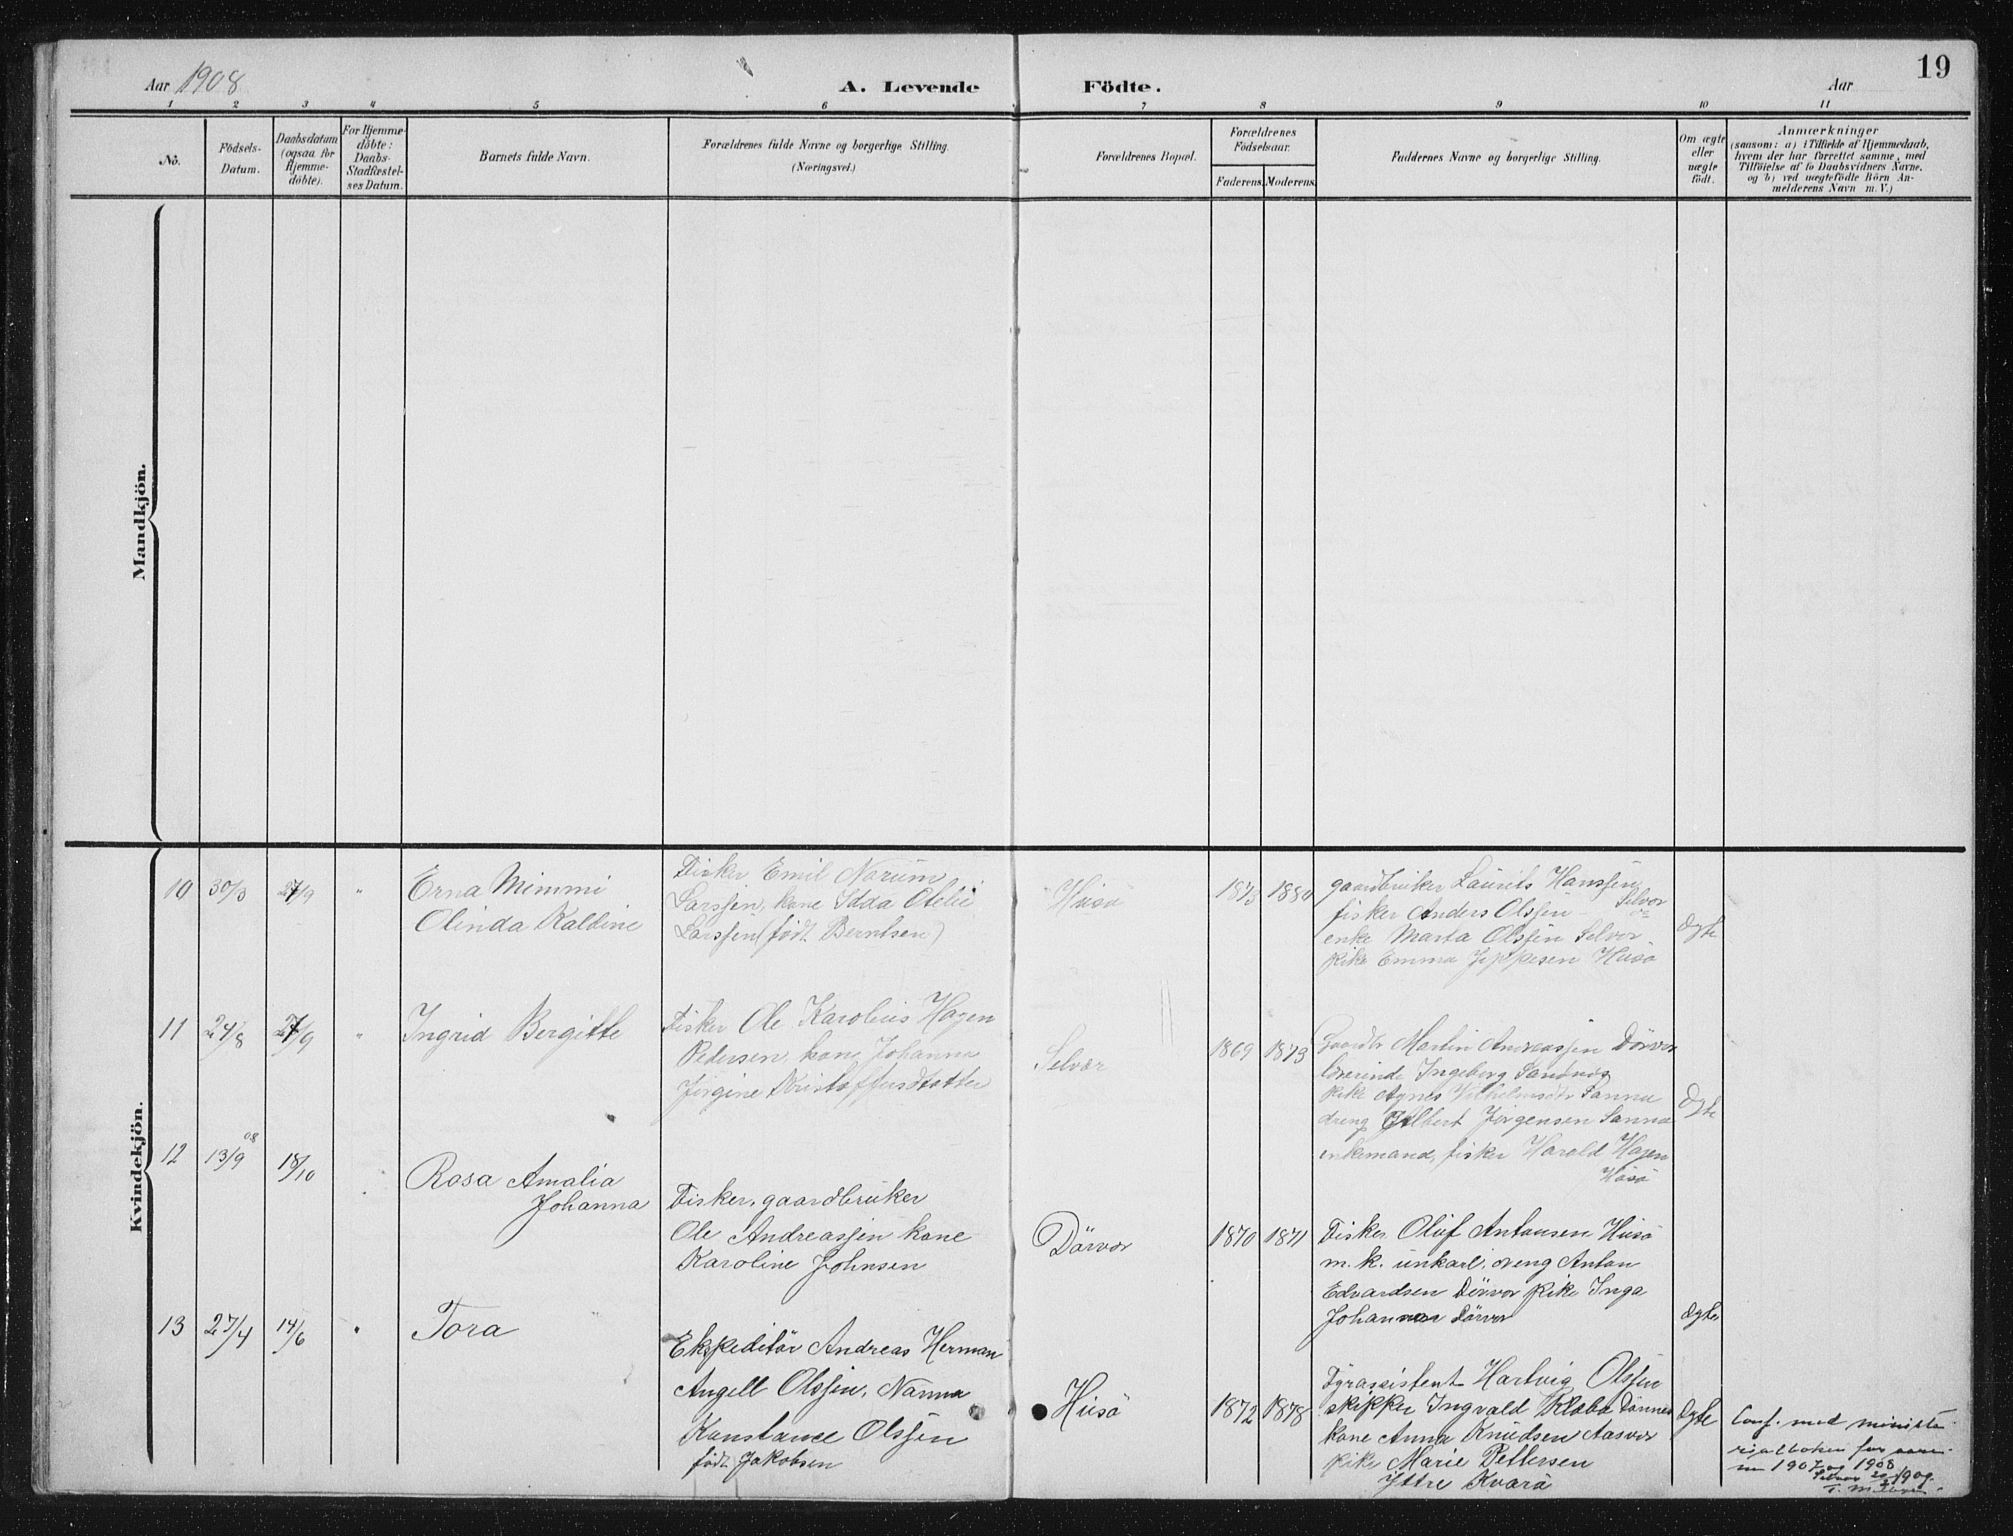 19
Aar 1908
A. Levende Födte.
Aar
1 2 3 4 5 6 7 8 9 10 11
No.
Födsels-
Datum.
Daabsdatum
(ogsaa for
Hjemme-
döbte).
For Hjemme-
döbte:
Daabs-
Stadfæstel-
ses Datum.
Barnets fulde Navn.
Forældrenes fulde Navne og borgerlige Stilling.
(Næringsvei.)
Forældrenes Bopæl.
Forældrenes
Födselsaar.
Faderens. Moderens.
Faddernes Navne og borgerlige Stilling.
Om ægte
eller
uægte
födt.
Anmærkninger
(saasom: a) i Tilfælde af Hjemmedaab,
hvem der har forrettet samme, med
Tilföielse af to Daabsvidners Navne,
og b) ved uægtefödte Börn An-
melderens Navn m. V.)
Mandkjön.
Kvindekjön.
10 30/3 27/9 "
Erna Mimmi
Olinda Kaldine
Fisker Emil Norum
Larssen, kone Idda Otelie
Larssen (født Berntsen)
Husö
1873 1880
gaardbruker Laurits Hanssen
Selvor
fisker Anders Olssen
enke Marta Olssen Selvor
pike Emma Jippesen Husö
Ægte
11 24/8 27/9 "
Ingrid Bergitte
Fisker Ole Karolius Hagen
Pedersen, kone Johanna
Jörgine Kristoffersdatter
Selvær
1869 1873
Gaardbr Martin Andreassen Dörvor
lærerinde Ingeborg Sandnes
pike Agnes Vilhelmsdtr Sanna
dreng Albert Jörgensen Sanna
enkemand, fisker Harald Hagen
Husö
Ægte
12 13/9 08 18/10
Rosa Amalia
Johanna
Fisker, gaardbruker
Ole Andreassen kone
Karoline Johnsen
Dörvor
1870 1871
Fisker Oluf Antonsen Husö
m. k. unkarl, dreng Anton
Edvardsen Dörvor pike Inga
Johannes Dörvor
Ægte
13 27/4 14/6 "
Tora
Ekspeditör Andreas Herman
Angell Olssen, Nanna
Konstance Olssen
født Jakobsen
Husö
1872 1878
Fyrassistent Hartvig Olssen
skipper Ingvald Klæbo Dönnes
kone Anna Knudsen Aasvor
pike Marie Pettersen
Yttre Kvarö
Ægte
Conf. med ministe-
rialboken for aare-
ne 1907 og 1908